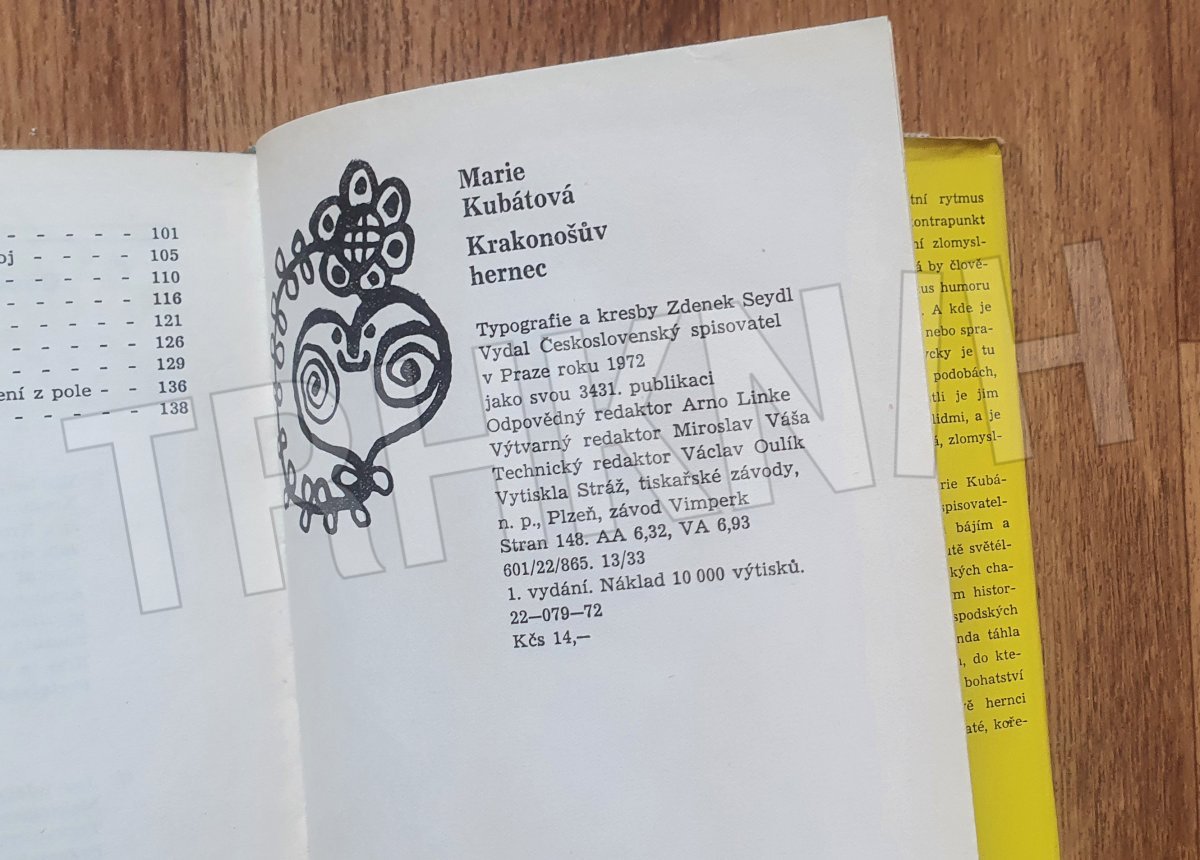 – – – – – 101
oj – – – – 105
– – – – – 110
– – – – – 116
– – – – – 121
– – – – – 126
– – – – – 129
ení z pole – – 136
– – – – – 138
Marie
Kubátová
Krakonošův
hernec
Typografie a kresby Zdenek Seydl
Vydal Československý spisovatel
v Praze roku 1972
jako svou 3431. publikaci
Odpovědný redaktor Arno Linke
Výtvarný redaktor Miroslav Váša
Technický redaktor Václav Oulík
Vytiskla Stráž, tiskařské závody,
n. p., Plzeň, závod Vimperk
Stran 148. AA 6,32, VA 6,93
601/22/865. 13/33
1. vydání. Náklad 10 000 výtisků.
22—079—72
Kčs 14,—
tní rytmus
kontrapunkt
ní zlomysl-
á by člově-
us humoru
. A kde je
nebo spra-
ycky je tu
podobách,
tli je jim
lidmi, a je
á, zlomysl-
rie Kubá-
spisovatel-
bájím a
utě světél-
kých cha-
m histor-
spodských
nda táhla
, do kte-
bohatství
vě hernci
até, koře-
TRHKNIH